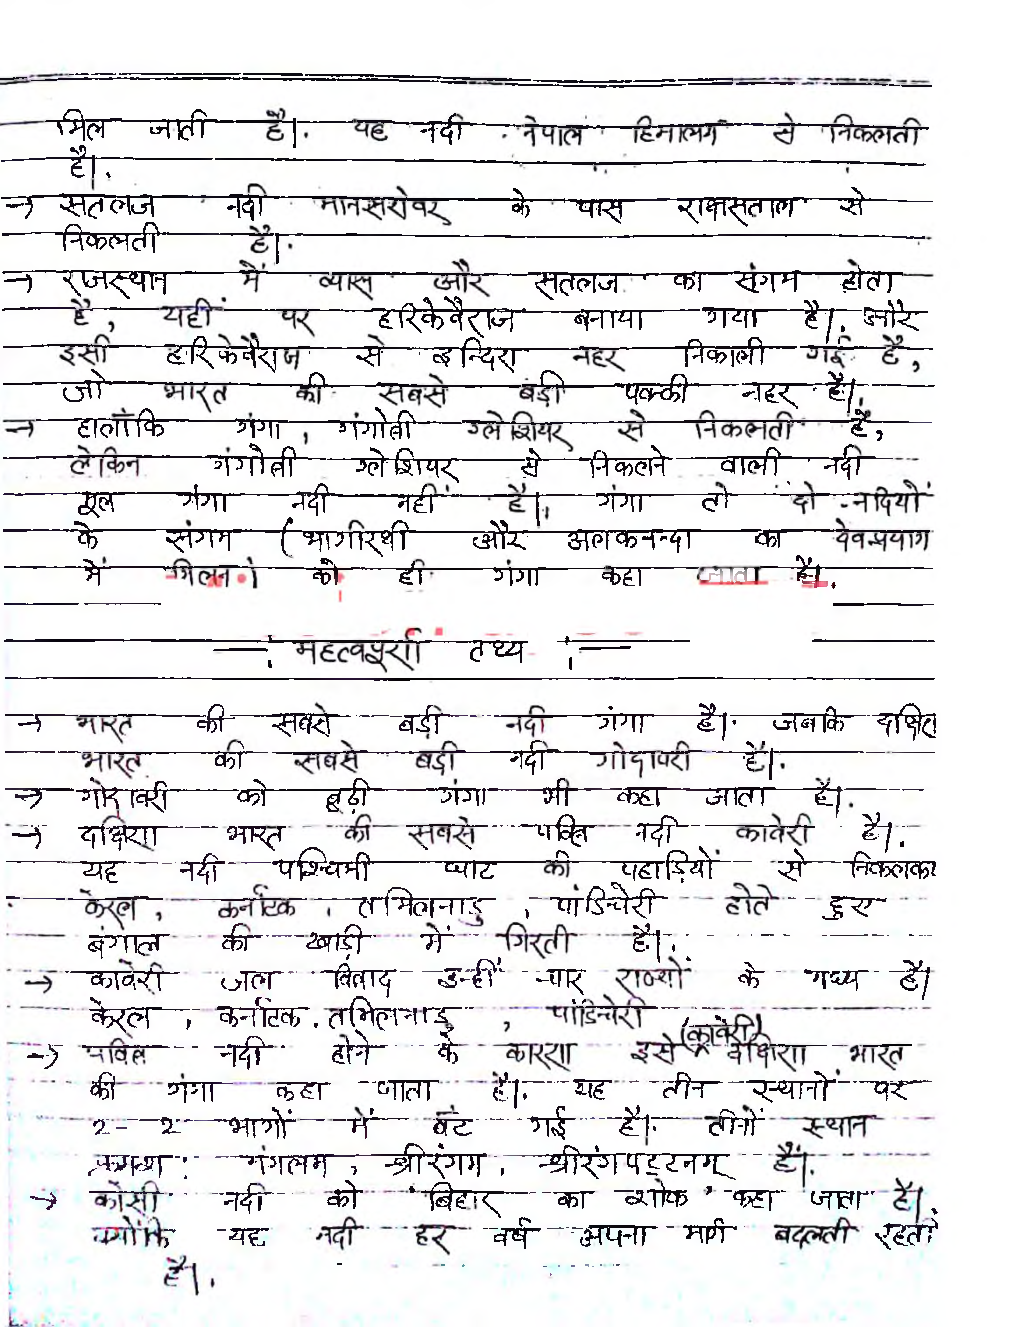 मिल जाती है। यह नदी नेपाल हिमालय से निकलती
है।
→ सतलज नदी मानसरोवर के पास राकसताल से
निकलती है।
→ राजस्थान में व्यास और सतलज का संगम होता
है, यहीं पर हरिकेवैराज बनाया गया है। और
इसी हरिकेवैराज से इन्दिरा नहर निकाली गई है,
जो भारत की सबसे बड़ी पक्की नहर है।
→ हालाँकि गंगा, गंगोत्री ग्लेशियर से निकलती है,
लेकिन गंगोत्री ग्लेशियर से निकलने वाली नदी
मूल गंगा नदी नहीं है। गंगा तो दो नदियों
के संगम (भागीरथी और अलकनन्दा का देवप्रयाग
में मिलन) को ही गंगा कहा जाता है।
महत्वपूर्ण तथ्य
→ भारत की सबसे बड़ी नदी गंगा है। जबकि दक्षिण
भारत की सबसे बड़ी नदी गोदावरी है।
→ गोदावरी को बूढ़ी गंगा भी कहा जाता है।
→ दक्षिण भारत की सबसे पवित्र नदी कावेरी है।
यह नदी पश्चिमी घाट की पहाड़ियों से निकलकर
केरल, कर्नाटक, तमिलनाडु, पांडिचेरी होते हुए
बंगाल की खाड़ी में गिरती है।
→ कावेरी जल विवाद उन्हीं चार राज्यों के मध्य है।
केरल, कर्नाटक, तमिलनाडु, पांडिचेरी
→ पवित्र नदी होने के कारण इसे (कावेरी) दक्षिण भारत
की गंगा कहा जाता है। यह तीन स्थानों पर
2-2 भागों में बंट गई है। तीनों स्थान
क्रमशः गंगलम, श्रीरंगम, श्रीरंगपट्टनम् हैं।
→ कोसी नदी को 'बिहार का शोक' कहा जाता है।
क्योंकि यह नदी हर वर्ष अपना मार्ग बदलती रहती
है।